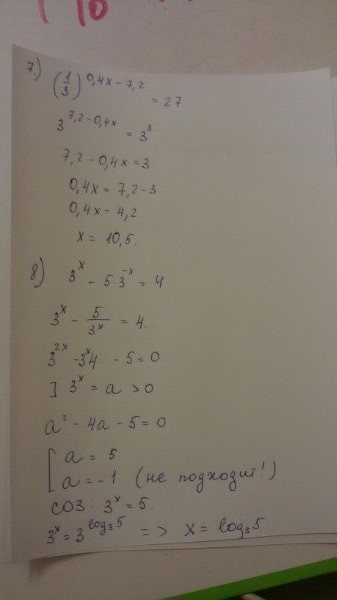 7.) (1/3)^0,4x-7,2 = 27
3^7,2-0,4x = 3^3
7,2-0,4x=3
0,4x = 7,2-3
0,4x = 4,2
x = 10,5.
8) 3^x - 5·3^-x = 4
3^x - 5/3^x = 4.
3^2x - 3^x4 - 5=0
] 3^x = a >0
a^2 - 4a - 5 = 0
[ a = 5
a = -1 (не подходит!)
СОЗ: 3^x = 5.
3^x = 3^log₃5 => x = log₃5